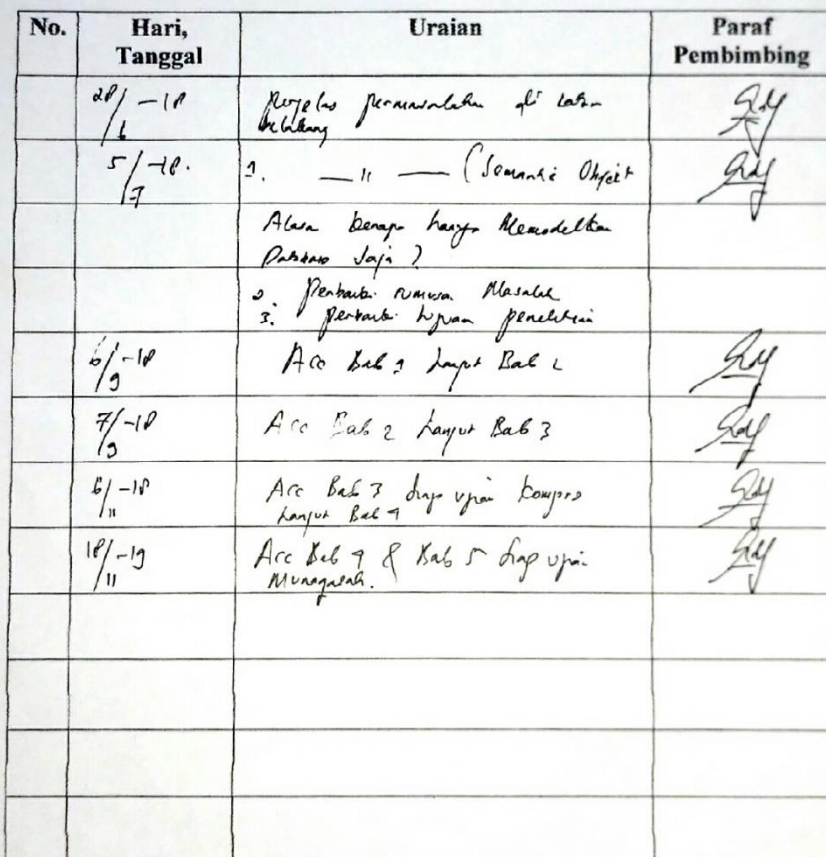 No. Hari, Tanggal Uraian Paraf Pembimbing
28/6 -18 Perjelas permasalahan di latar
belakang
5/7 -18. 1. — 11 — (Semantic Object
Alasan kenapa hanya Memodelkan
saja ?
2. Perbaiki rumusan Masalah
3. Perbaiki tujuan penelitian
6/9 -18 Acc Bab 1 Lanjut Bab 2
7/9 -18 Acc Bab 2 Lanjut Bab 3
6/11 -18 Acc Bab 3 siap ujian kompre
Lanjut Bab 4
18/11 -19 Acc Bab 4 & Bab 5 siap ujian
Munaqasah.